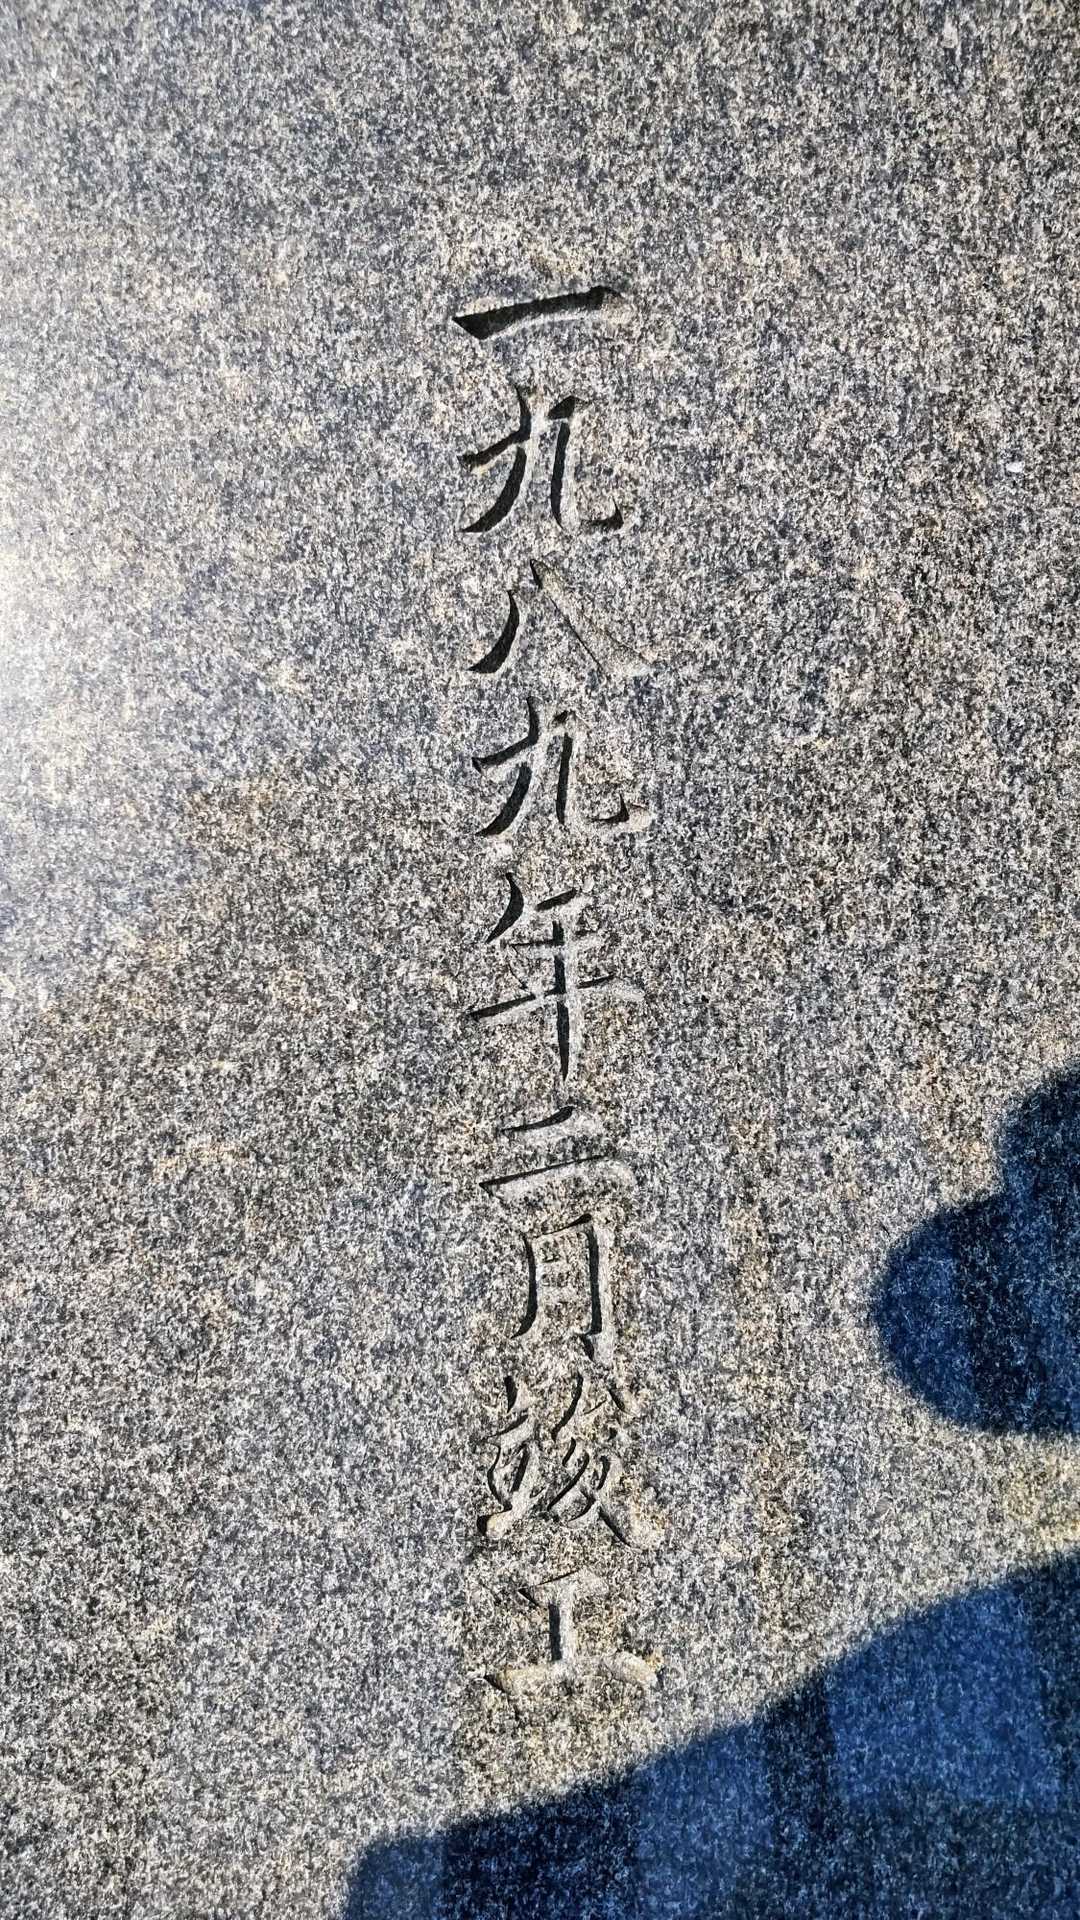 一九八九年二月竣工